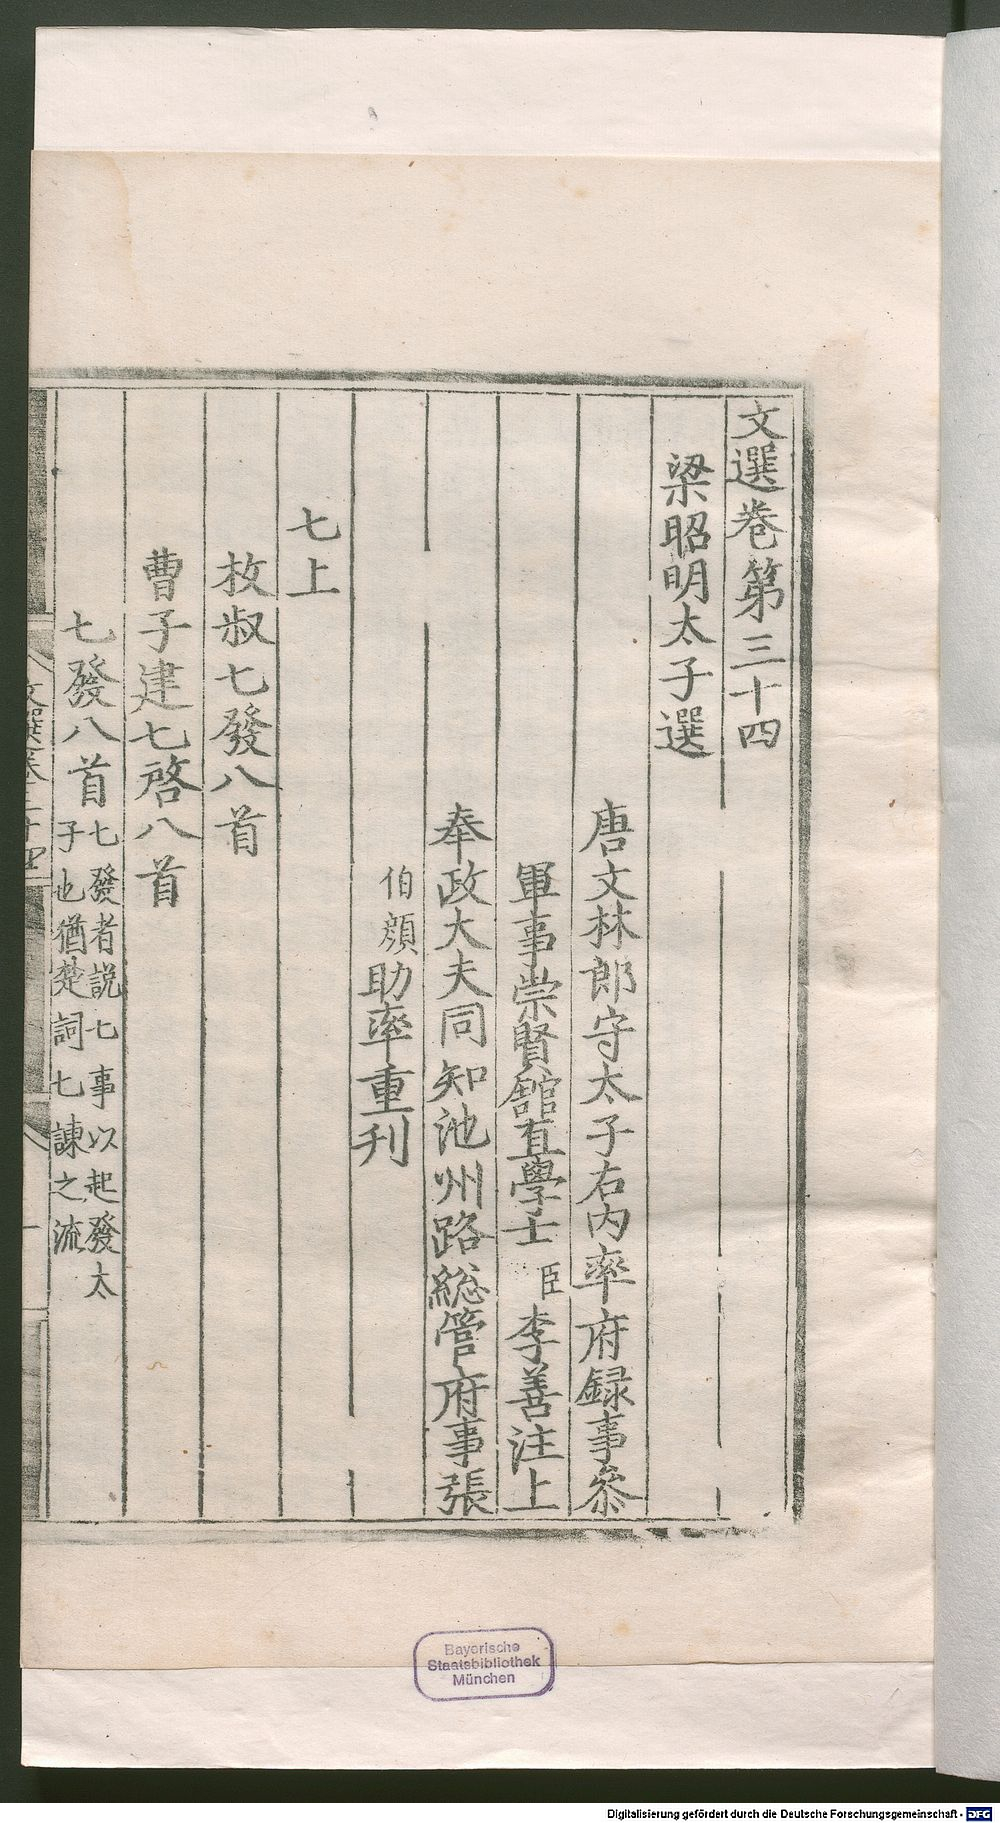 文選卷第三十四
梁昭明太子選
唐文林郎守太子右内率府録事參
軍事崇賢館直學士臣李善注上
奉政大夫同知池州路緫管府事張
伯顔助率重刊
七上
枚叔七發八首
曹子建七啓八首
七發八首七發者説七事以起發太
子也猶楚詞七諫之流
文選卷三十四
Bayerische
Staatsbibliothek
München
Digitalisierung gefördert durch die Deutsche Forschungsgemeinschaft - DFG